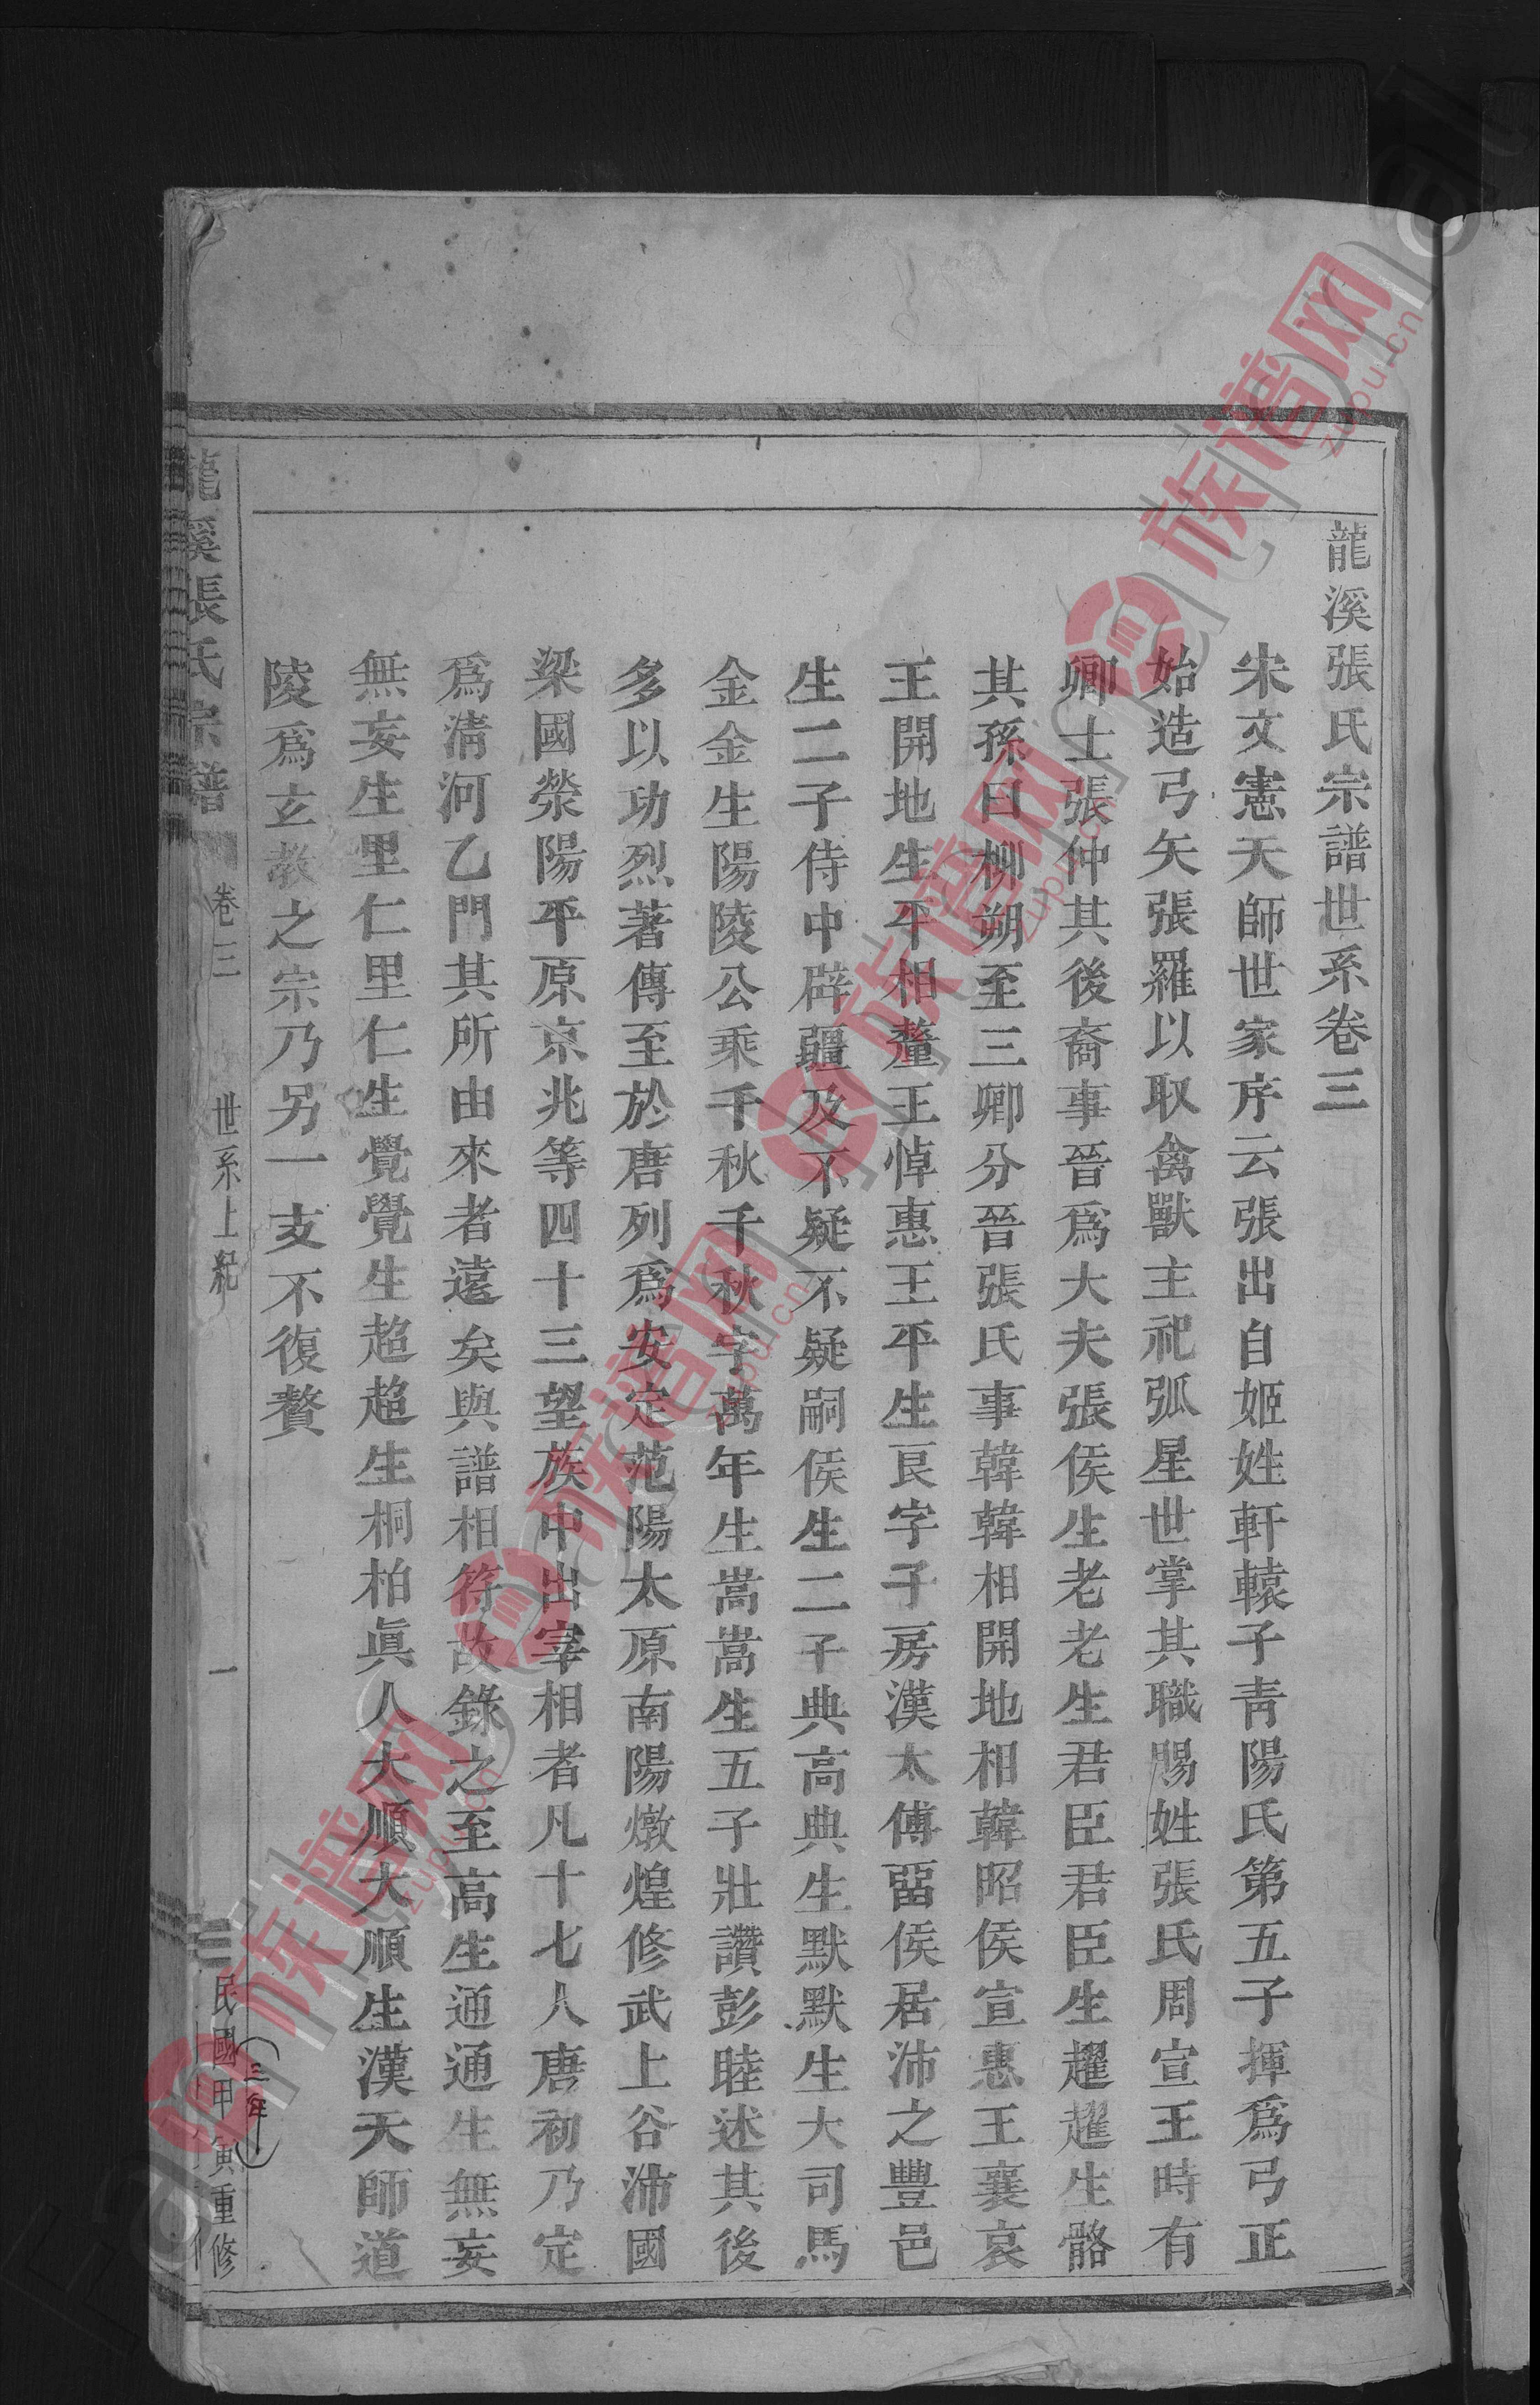 龍溪張氏宗譜世系卷三
宋文憲天師世家序云張出自姬姓軒轅子靑陽氏第五子揮爲弓正
始造弓矢張羅以取禽獸主祀弧星世掌其職賜姓張氏周宣王時有
卿士張仲其後裔事晉爲大夫張侯生老老生君臣君臣生趯趯生骼
其孫曰柳朔至三卿分晉張氏事韓韓相開地相韓昭侯宣惠王襄哀
王開地生平相釐王悼惠王平生良字子房漢太傅畱侯居沛之豐邑
生二子侍中辟疆及不疑不疑嗣侯生二子典高典生默默生大司馬
金金生陽陵公乘千秋千秋字萬年生嵩嵩生五子壯讚彭睦述其後
多以功烈著傳至於唐列爲安定范陽太原南陽燉煌修武上谷沛國
梁國滎陽平原京兆等四十三望族中出宰相者凡十七人唐初乃定
爲淸河乙門其所由來者遠矣與譜相符故錄之至高生通通生無妄
無妄生里仁里仁生覺覺生超超生桐柏眞人大順大順生漢天師道
陵爲玄敎之宗乃另一支不復贅
龍溪張氏宗譜
卷三
世系上紀
一
民國甲寅重修
(三年)
族谱网
zupu.cn
族谱网
zupu.cn
族谱网
zupu.cn
族谱网
zupu.cn
族谱网